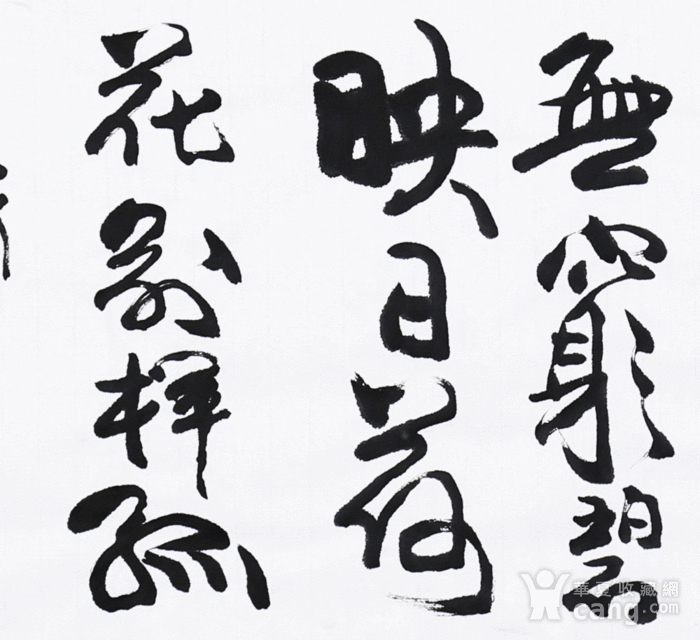 無窮碧
映日荷
花别样紅
華夏收藏網
cang.com